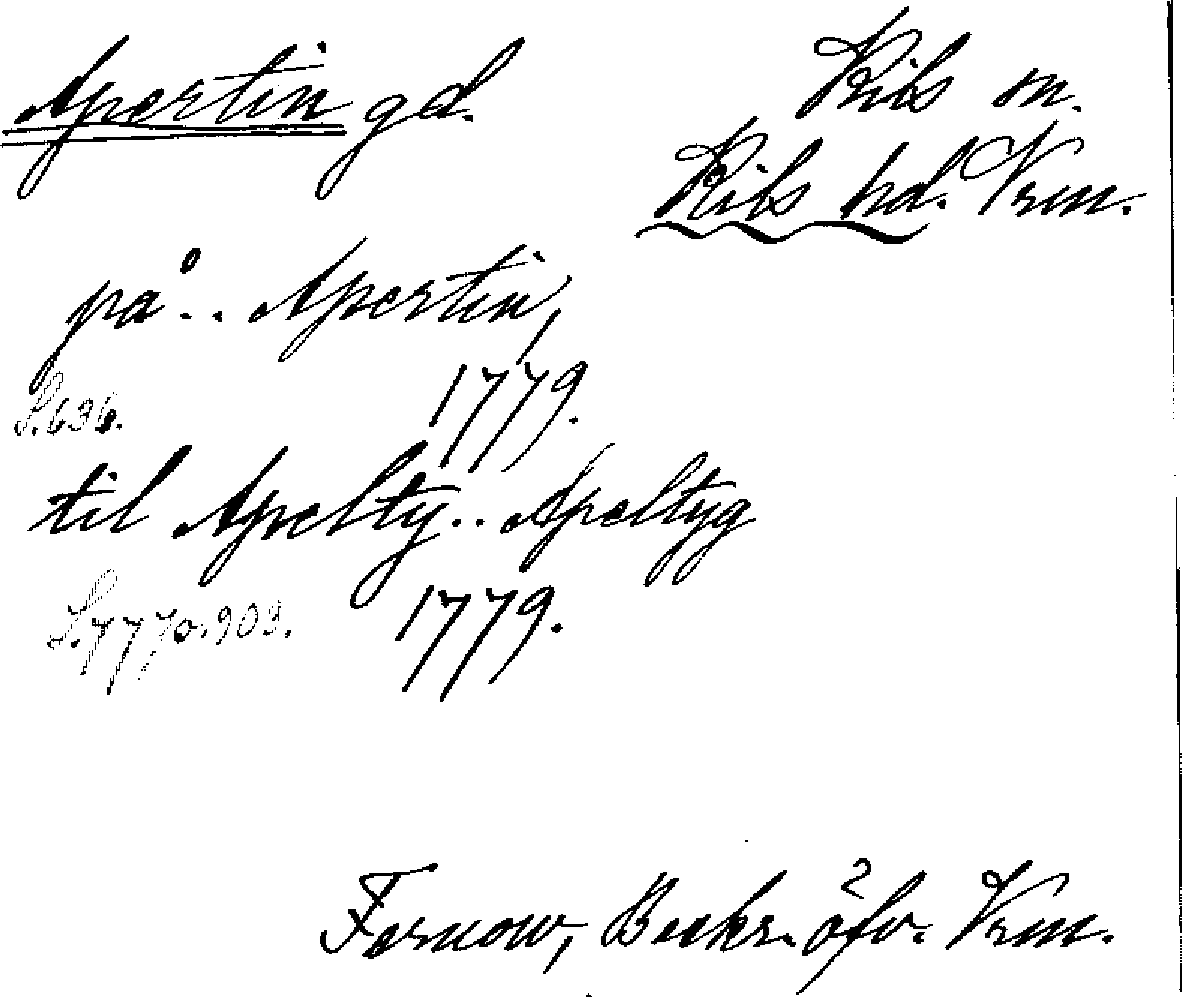 Apertin gd.
Kils sn.
Kils hd. Vrm.
på.. Apertin,
S. 636. 1779.
til Apelty.. Apeltyg
S. 770. 903. 1779.
Fernow, Beskr. öfv. Vrm. 2